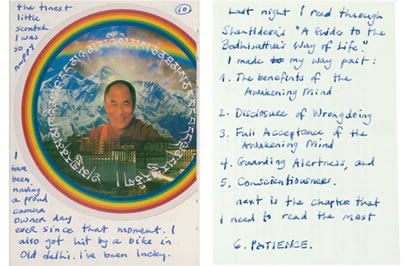 the tinest
little
scratch.
I was
so
happy
60
I
have
been
having
a proud
camera
owner day
ever since that moment. I
also got hit by a bike in
Old delhi. I've been lucky.
Last night I read through
Shantideva's "A Guide to the
Bodhisattva's Way of Life."
I made my way past:
1. The benefits of the
Awakening Mind
2. Disclosure of Wrongdoing
3. Full Acceptance of the
Awakening Mind
4. Guarding Alertness, and
5. Conscientiousness.
next is the chapter that
I need to read the most
6. PATIENCE.